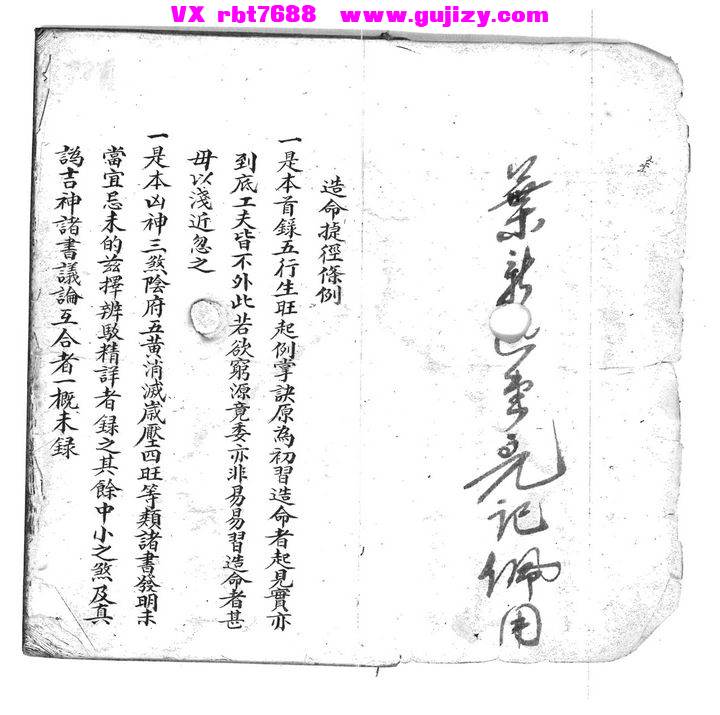 VX rbt7688 www.gujizy.com
葉新
堂亮記佩用
造命捷徑條例
一是本首錄五行生旺起例掌訣原為初習造命者起見實亦
到底工夫皆不外此若欲窮源竟委亦非易易習造命者甚
毋以淺近忽之
一是本凶神三煞陰府五黃消滅歲壓四旺等類諸書發明未
當宜忌未的茲擇辨駁精詳者錄之其餘中小之煞及真
譌吉神諸書議論互合者一概未錄